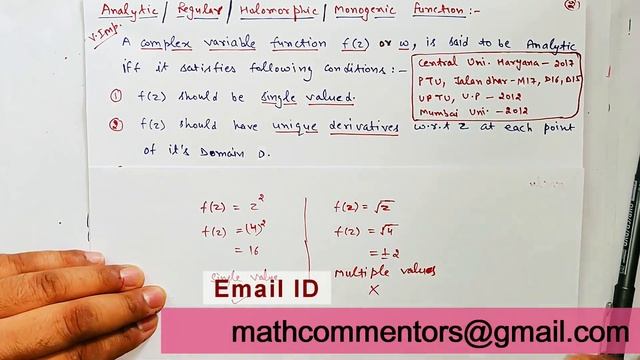 Analytic / Regular / Holomorphic / Monogenic Function:-
(2)
V. Imp.
A complex variable function f(z) or ω, is said to be Analytic
iff it satisfies following conditions:-
Central Uni. Haryana - 2017
PTU, Jalandhar - M17, D16, D15
UPTU, U.P - 2012
Mumbai Uni. - 2012
① f(z) should be single valued.
② f(z) should have unique derivatives w.r.t z at each point
of it's Domain D.
f(z) = z²
f(z) = (4)²
= 16
single value
f(z) = √z
f(z) = √4
= ±2
multiple values
×
Email ID
mathcommentors@gmail.com